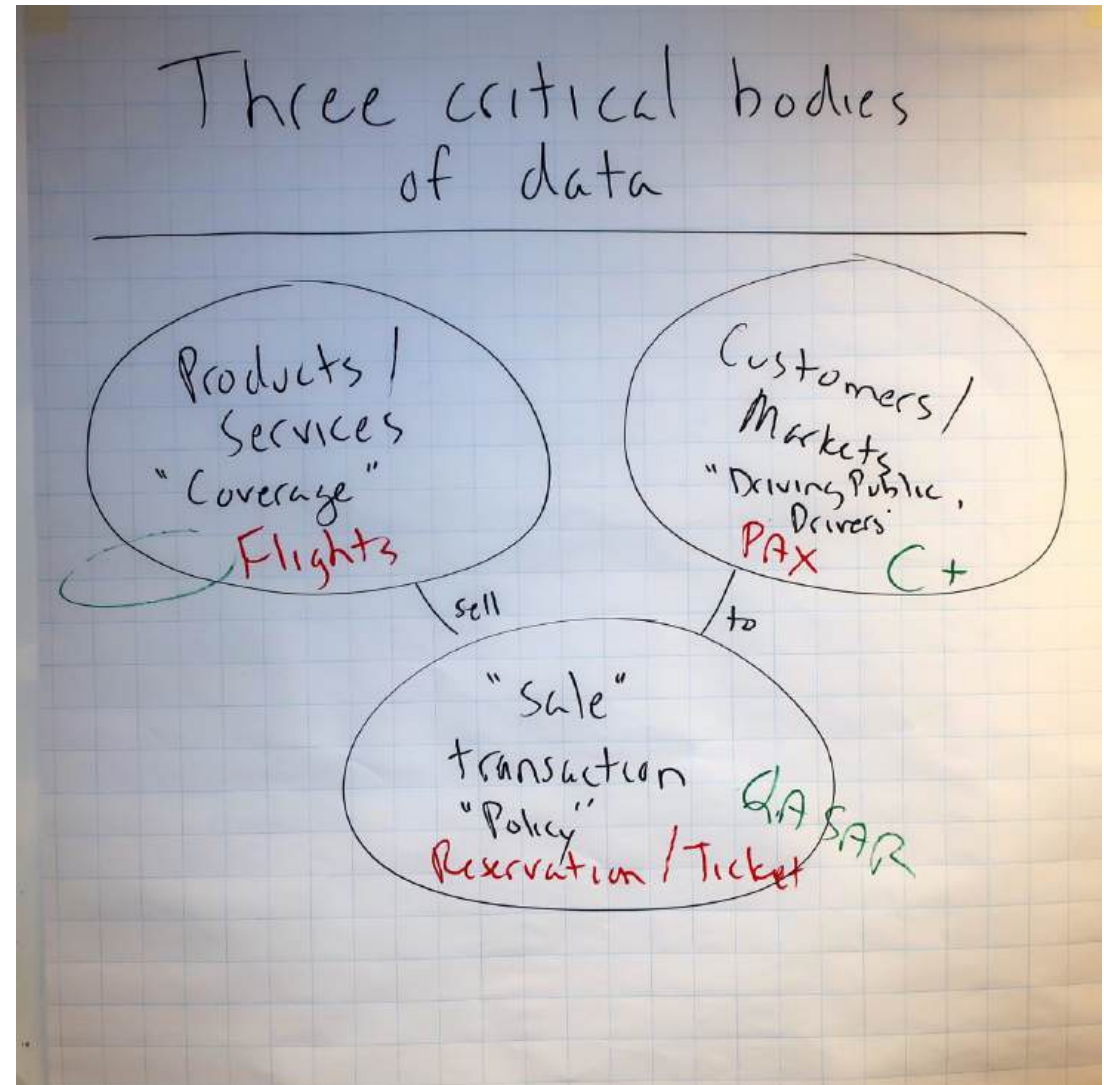 Three critical bodies
of data
Products /
Services
"Coverage"
Flights
Customers /
Markets
"Driving Public,
Drivers"
PAX C+
sell
to
"Sale"
transaction
"Policy"
QASAR
Reservation / Ticket